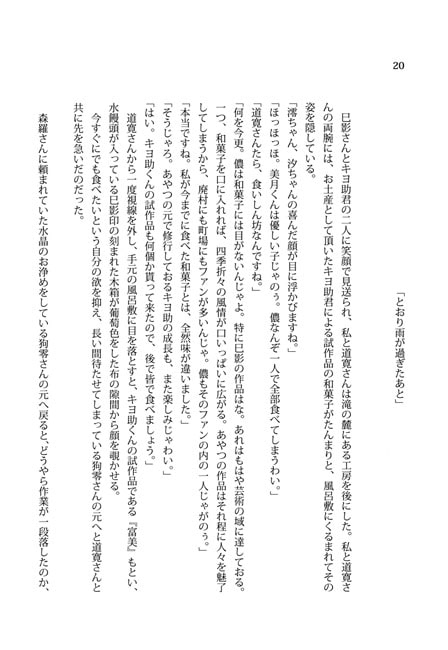 20
「とおり雨が過ぎたあと」
巳影さんとキヨ助君の二人に笑顔で見送られ、私と道寛さんは滝の麓にある工房を後にした。私と道寛さ
んの両腕には、お土産として頂いたキヨ助君による試作品の和菓子がたんまりと、風呂敷にくるまれてその
姿を隠している。
「澪ちゃん、汐ちゃんの喜んだ顔が目に浮かびますね。」
「ほっほっほ、美月くんは優しい子じゃのぅ。儂なんぞ一人で全部食べてしまうわい。」
「道寛さんたら、食いしん坊なんですね。」
「何を今更。儂は和菓子には目がないんじゃよ。特に巳影の作品はな。あれはもはや芸術の域に達しておる。
一つ、和菓子を口に入れれば、四季折々の風情が口いっぱいに広がる。あやつの作品はそれ程に人々を魅了
してしまうから、廃村にも町場にもファンが多いんじゃ。儂もそのファンの内の一人じゃがのぅ。」
「本当ですね。私が今までに食べた和菓子とは、全然味が違いました。」
「そうじゃろ。あやつの元で修行しておるキヨ助の成長も、また楽しみじゃわい。」
「はい。キヨ助くんの試作品も何個か貰って来たので、後で皆で食べましょう。」
道寛さんから一度視線を外し、手元の風呂敷に目を落とすと、キヨ助くんの試作品である『富美』もとい、
水饅頭が入っている巳影印の刻まれた木箱が葡萄色をした布の隙間から顔を覗かせる。
今すぐにでも食べたいという自分の欲を抑え、長い間待たせてしまっている狗零さんの元へと道寛さんと
共に先を急いだのだった。
森羅さんに頼まれていた水晶のお浄めをしている狗零さんの元へ戻ると、どうやら作業が一段落したのか、